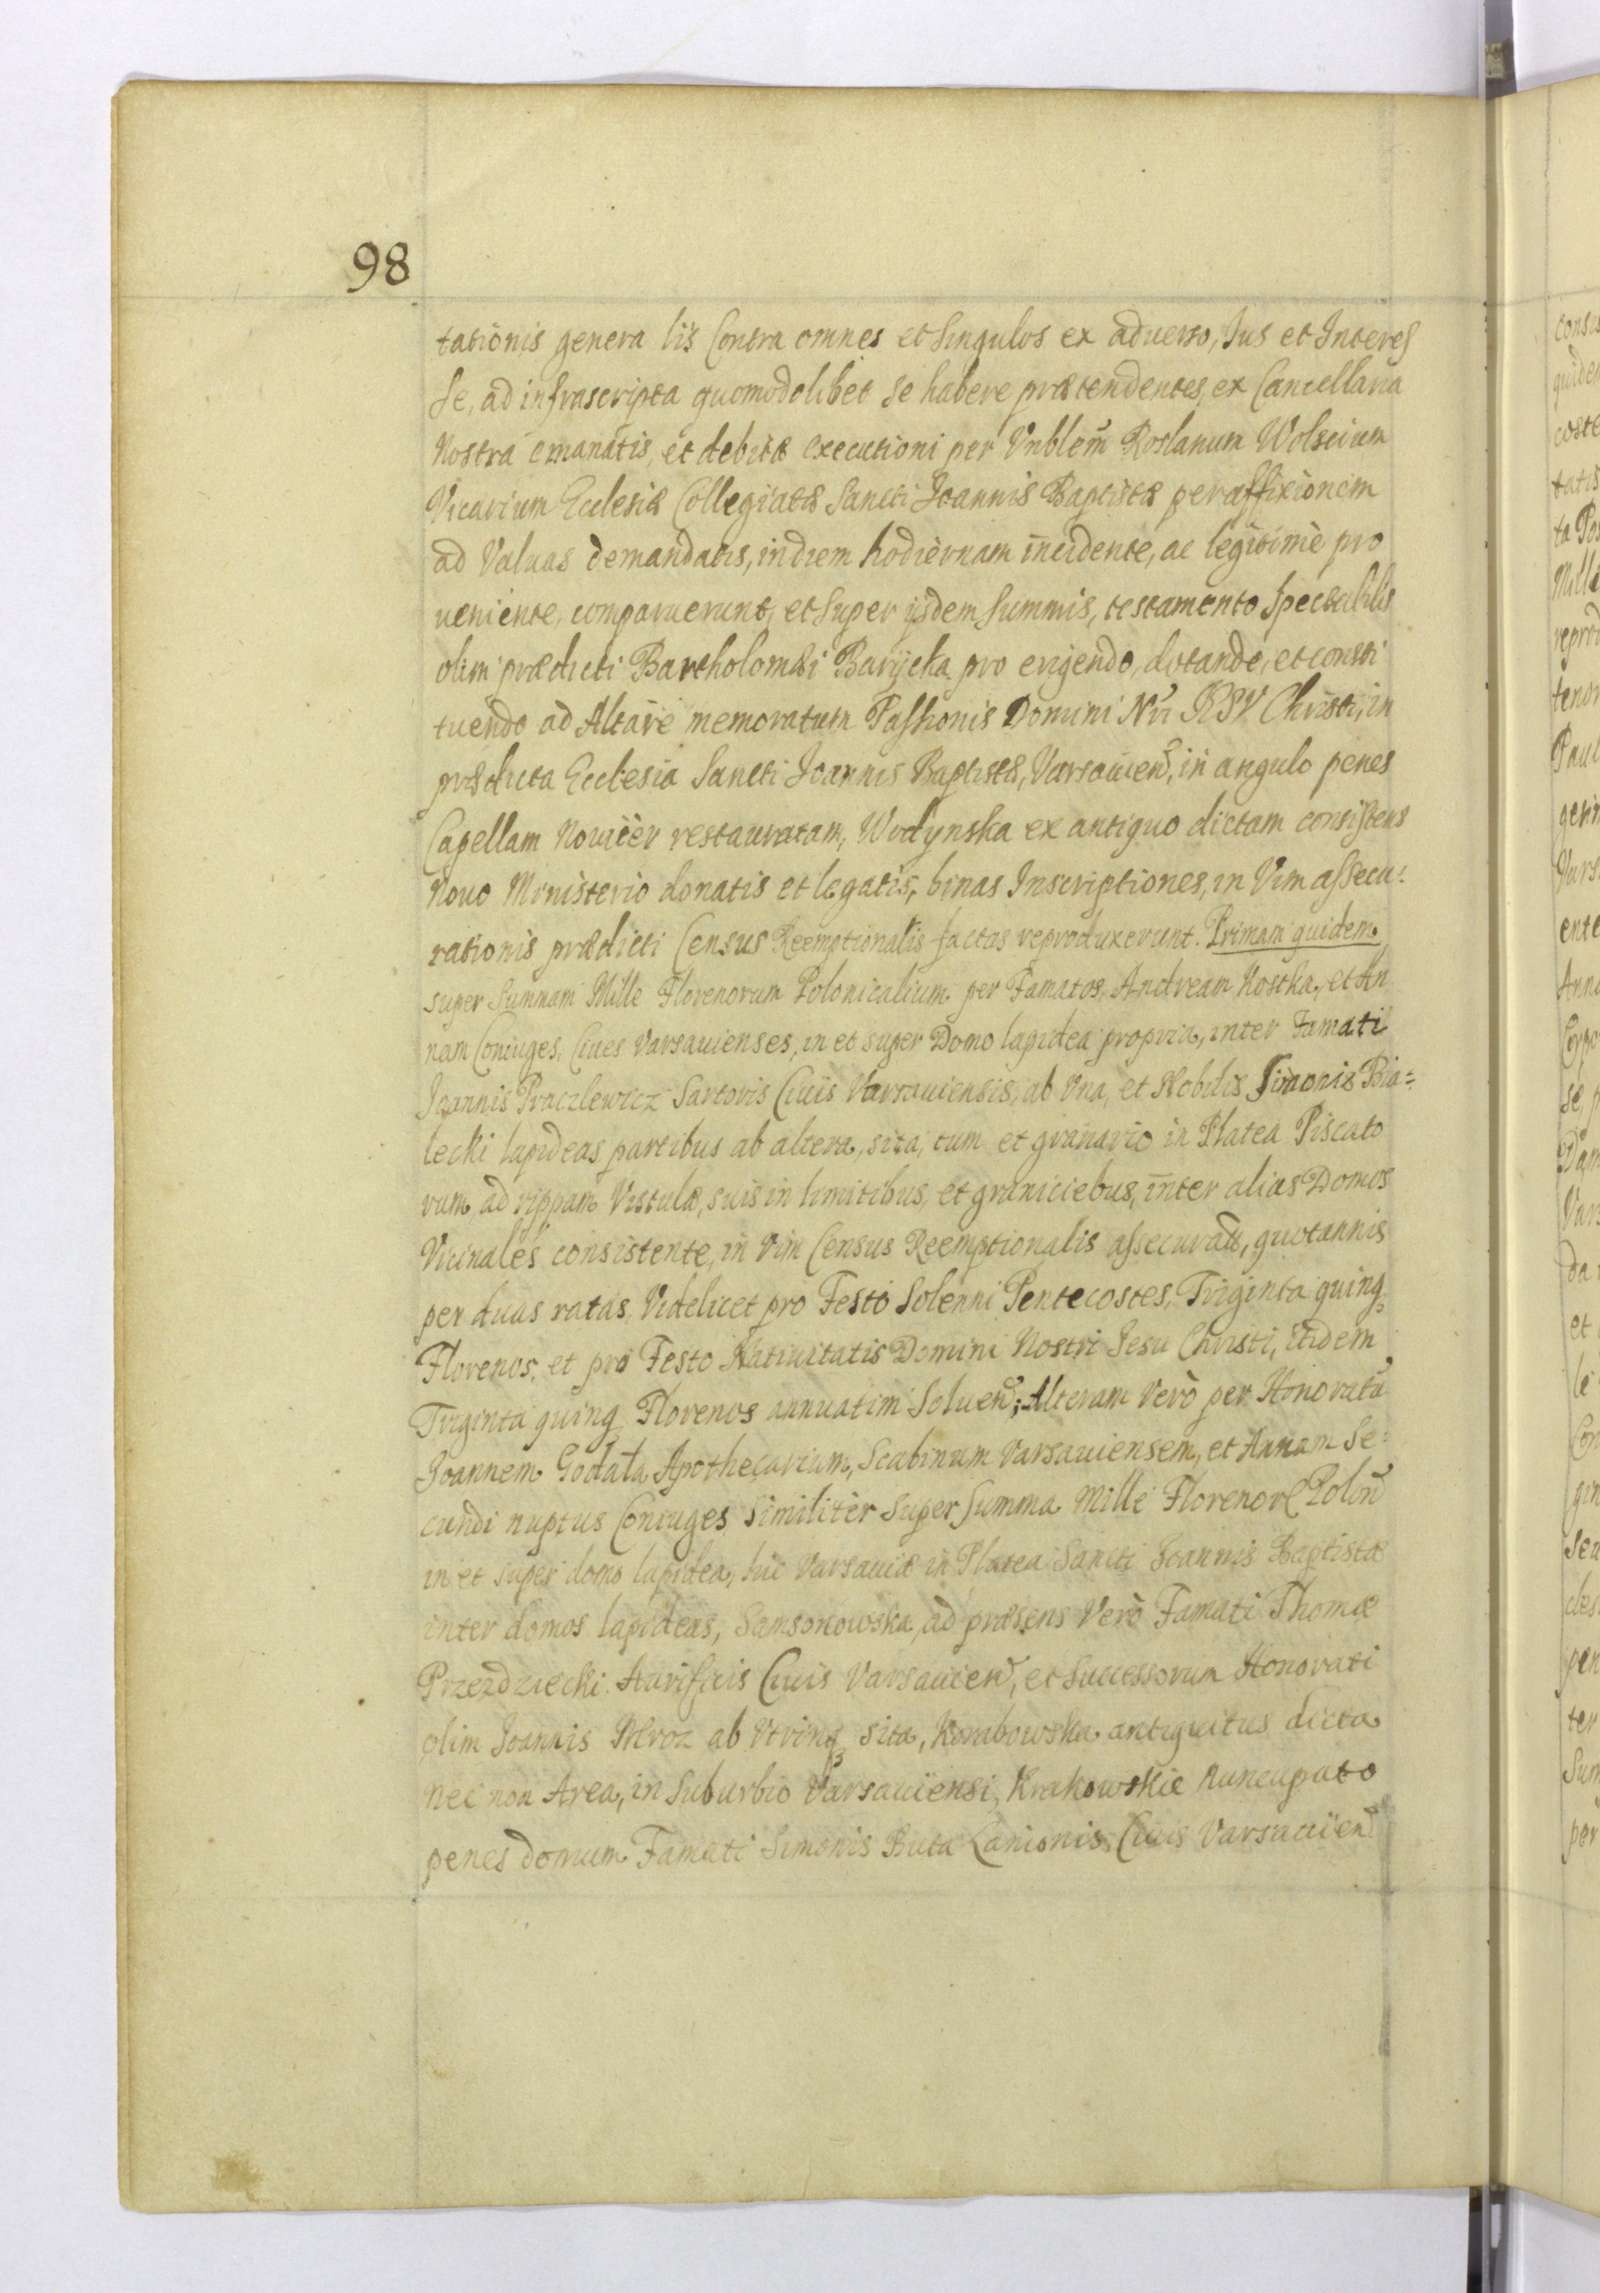 98
tationis genera lis Contra omnes et Singulos ex aduerso, Jus et Interes
se, ad infrascripta quomodolibet se habere prætendentes, ex Cancellaria
Nostra emanatis, et debitæ executioni per Vnblem Roslanum Wolscium
Vicarium Ecclesiæ Collegiatæ Sancti Joannis Baptistæ per affixionem
ad Valuas demandatis, in diem hodiernam incidente, ac legitimè pro
ueniente, comparuerunt, et super ijsdem summis, testamento Spectabilis
olim prædicti Bartholomæi Barijcka pro erigendo, dotando, et consti
tuendo ad Altare memoratum Passionis Domini Nri IESV Christi, in
prædicta Ecclesia Sancti Joannis Baptistæ, Varsauien, in angulo penes
Capellam Nouitèr restauratam, Wodynska ex antiquo dictam consistens
Nouo Ministerio donatis et legatis, binas Inscriptiones, in Vim assecu:
rationis prædicti Census Reemptionalis factas reproduxerunt. Primam quidem
super Summam Mille Florenorum Polonicalium per Famatos Andream Kostka, et An
nam Coniuges, Ciues Varsauienses, in et super Domo lapidea propria, inter Famati
Joannis Praczlewicz Sartoris Ciuis Varsauiensis, ab Vna, et Nobilis Simonis Bia=
lecki lapideas partibus ab altera, sita, tum et granario in Platea Piscato
rum ad rippam Vistulæ, suis in limitibus, et graniciebus, inter alias Domos
Vicinales consistente, in Vim Census Reemptionalis assecuratæ, quotannis
per duas ratas Videlicet pro Festo Solenni Pentecostes, Triginta quinq
Florenos, et pro Festo Natiuitatis Domini Nostri Jesu Christi, itidem
Triginta quinq Florenos annuatim Soluen; Alteram Verò per Honoratu
Joannem Godata Apothecarium, Scabinum Varsauiensem, et Annam Se:
cundi nuptus Coniuges similiter Super Summa Mille Florenor Polon
in et super domo lapidea, hic Varsauiæ in Platea Sancti Joannis Baptistæ
inter domos lapideas, Samsonowska, ad præsens Verò Famati Thomæ
Przezdziecki Aurificis Ciuis Varsauien, et Successorum Honorati
olim Joannis Mroz ab Vtrinq sita, Korabowska antiquitus dicta
nec non Area, in Suburbio Varsauiensi, Krakowskie Nuncupato
penes domum Famati Simonis Buta Lanionis, Ciuis Varsauien